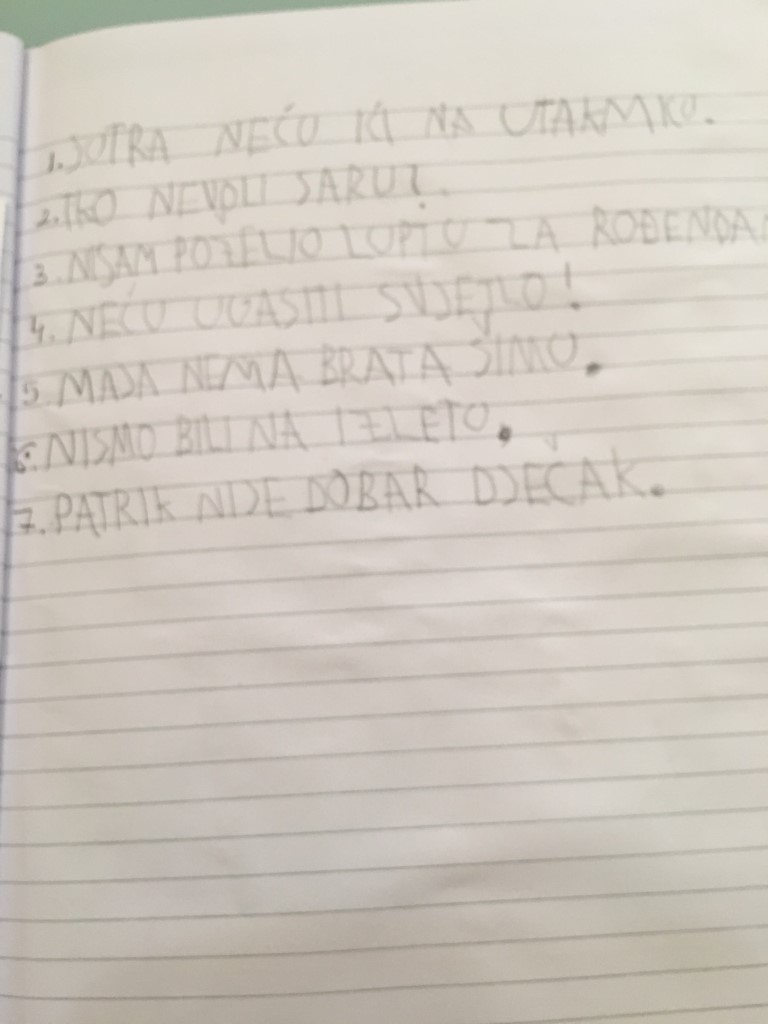 1. SUTRA NEĆU IĆI NA UTAKMKU.
2. TKO NEVOLI SARU?
3. NISAM POŽELIO LOPTU ZA ROĐENDAN
4. NEĆU UGASITI SVJETLO!
5. MAJA NEMA BRATA ŠIMU.
6. NISMO BILI NA IZLETU.
7. PATRIK NIJE DOBAR DJEČAK.